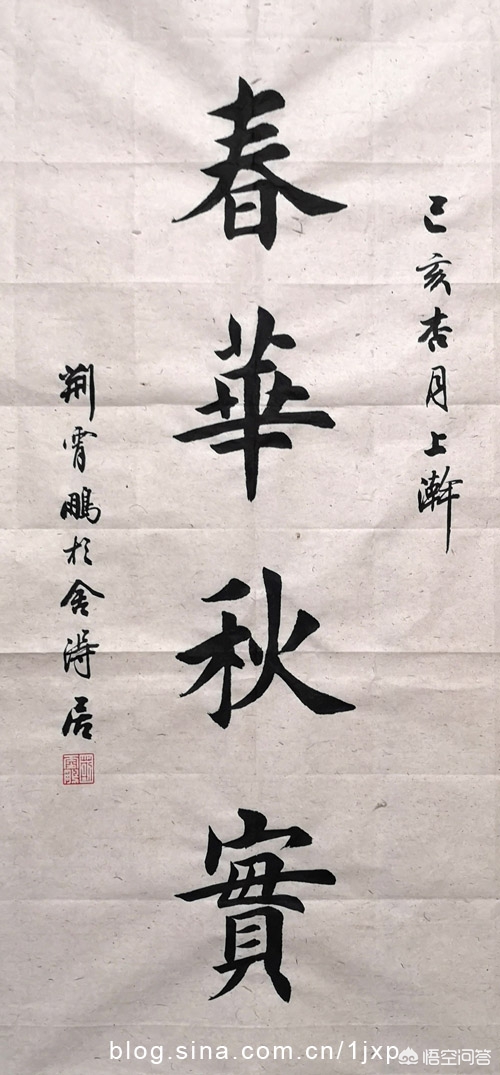 己亥杏月上澣
春華秋實
荆霄鵬於舍得居
blog.sina.com.cn/1jxp
悟空问答